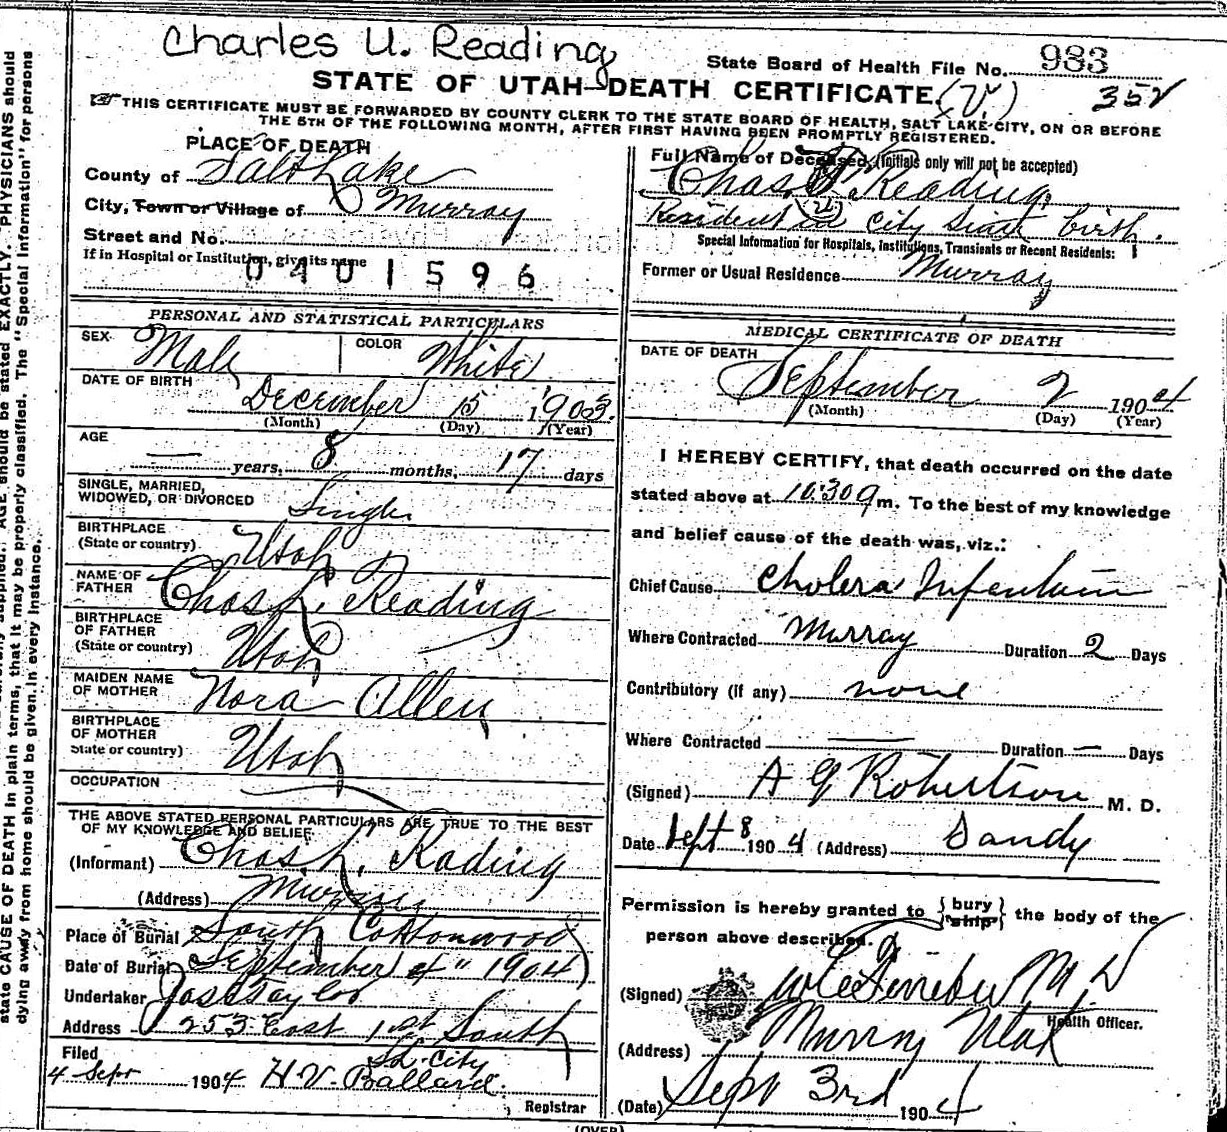 Charles U. Reading
State Board of Health File No. 983
STATE OF UTAH—DEATH CERTIFICATE. (V.) 352
THIS CERTIFICATE MUST BE FORWARDED BY COUNTY CLERK TO THE STATE BOARD OF HEALTH, SALT LAKE CITY, ON OR BEFORE
THE 5TH OF THE FOLLOWING MONTH, AFTER FIRST HAVING BEEN PROMPTLY REGISTERED.
PLACE OF DEATH
County of Salt Lake
City, Town or Village of Murray
Street and No.
If in Hospital or Institution, give its name
0401596
PERSONAL AND STATISTICAL PARTICULARS
SEX Male COLOR White
DATE OF BIRTH December 15 1903.
(Month) (Day) (Year)
AGE
— years, 8 months, 17 days
SINGLE, MARRIED,
WIDOWED, OR DIVORCED Single
BIRTHPLACE
(State or country) Utah
NAME OF
FATHER Chas. h. Reading
BIRTHPLACE
OF FATHER
(State or country) Utah
MAIDEN NAME
OF MOTHER Nora Allen
BIRTHPLACE
OF MOTHER
State or country) Utah
OCCUPATION
THE ABOVE STATED PERSONAL PARTICULARS ARE TRUE TO THE BEST
OF MY KNOWLEDGE AND BELIEF.
(Informant) Chas h. Rading
(Address) Murray
Place of Burial South Cottonwood
Date of Burial September 4" 1904
Undertaker Jos Taylor
Address 253 East 1st South
S.L. City
Filed
4 Sept 1904 H.V. Ballard.
Registrar
Full Name of Deceased, (Initials only will not be accepted)
Chas. U. Reading
(U)
Resident in City Since birth.
Special Information for Hospitals, Institutions, Transients or Recent Residents:
Former or Usual Residence Murray
MEDICAL CERTIFICATE OF DEATH
DATE OF DEATH
September 2 1904
(Month) (Day) (Year)
I HEREBY CERTIFY, that death occurred on the date
stated above at 10:30 a m. To the best of my knowledge
and belief cause of the death was, viz.:
Chief Cause Cholera Infantum
Where Contracted Murray Duration 2 Days
Contributory (if any) none
Where Contracted — Duration — Days
(Signed) A G Robertson M. D.
Date Sept 8 1904 (Address) Sandy
Permission is hereby granted to {bury ship} the body of the
person above described.
(Signed) M D
Health Officer.
(Address) Murray Utah
(Date) Sept 3rd 1904
(OVER)
state CAUSE OF DEATH in plain terms, that it may be properly classified. The "Special Information" for persons
dying away from home should be given in every instance.
AGE should be stated EXACTLY. PHYSICIANS should